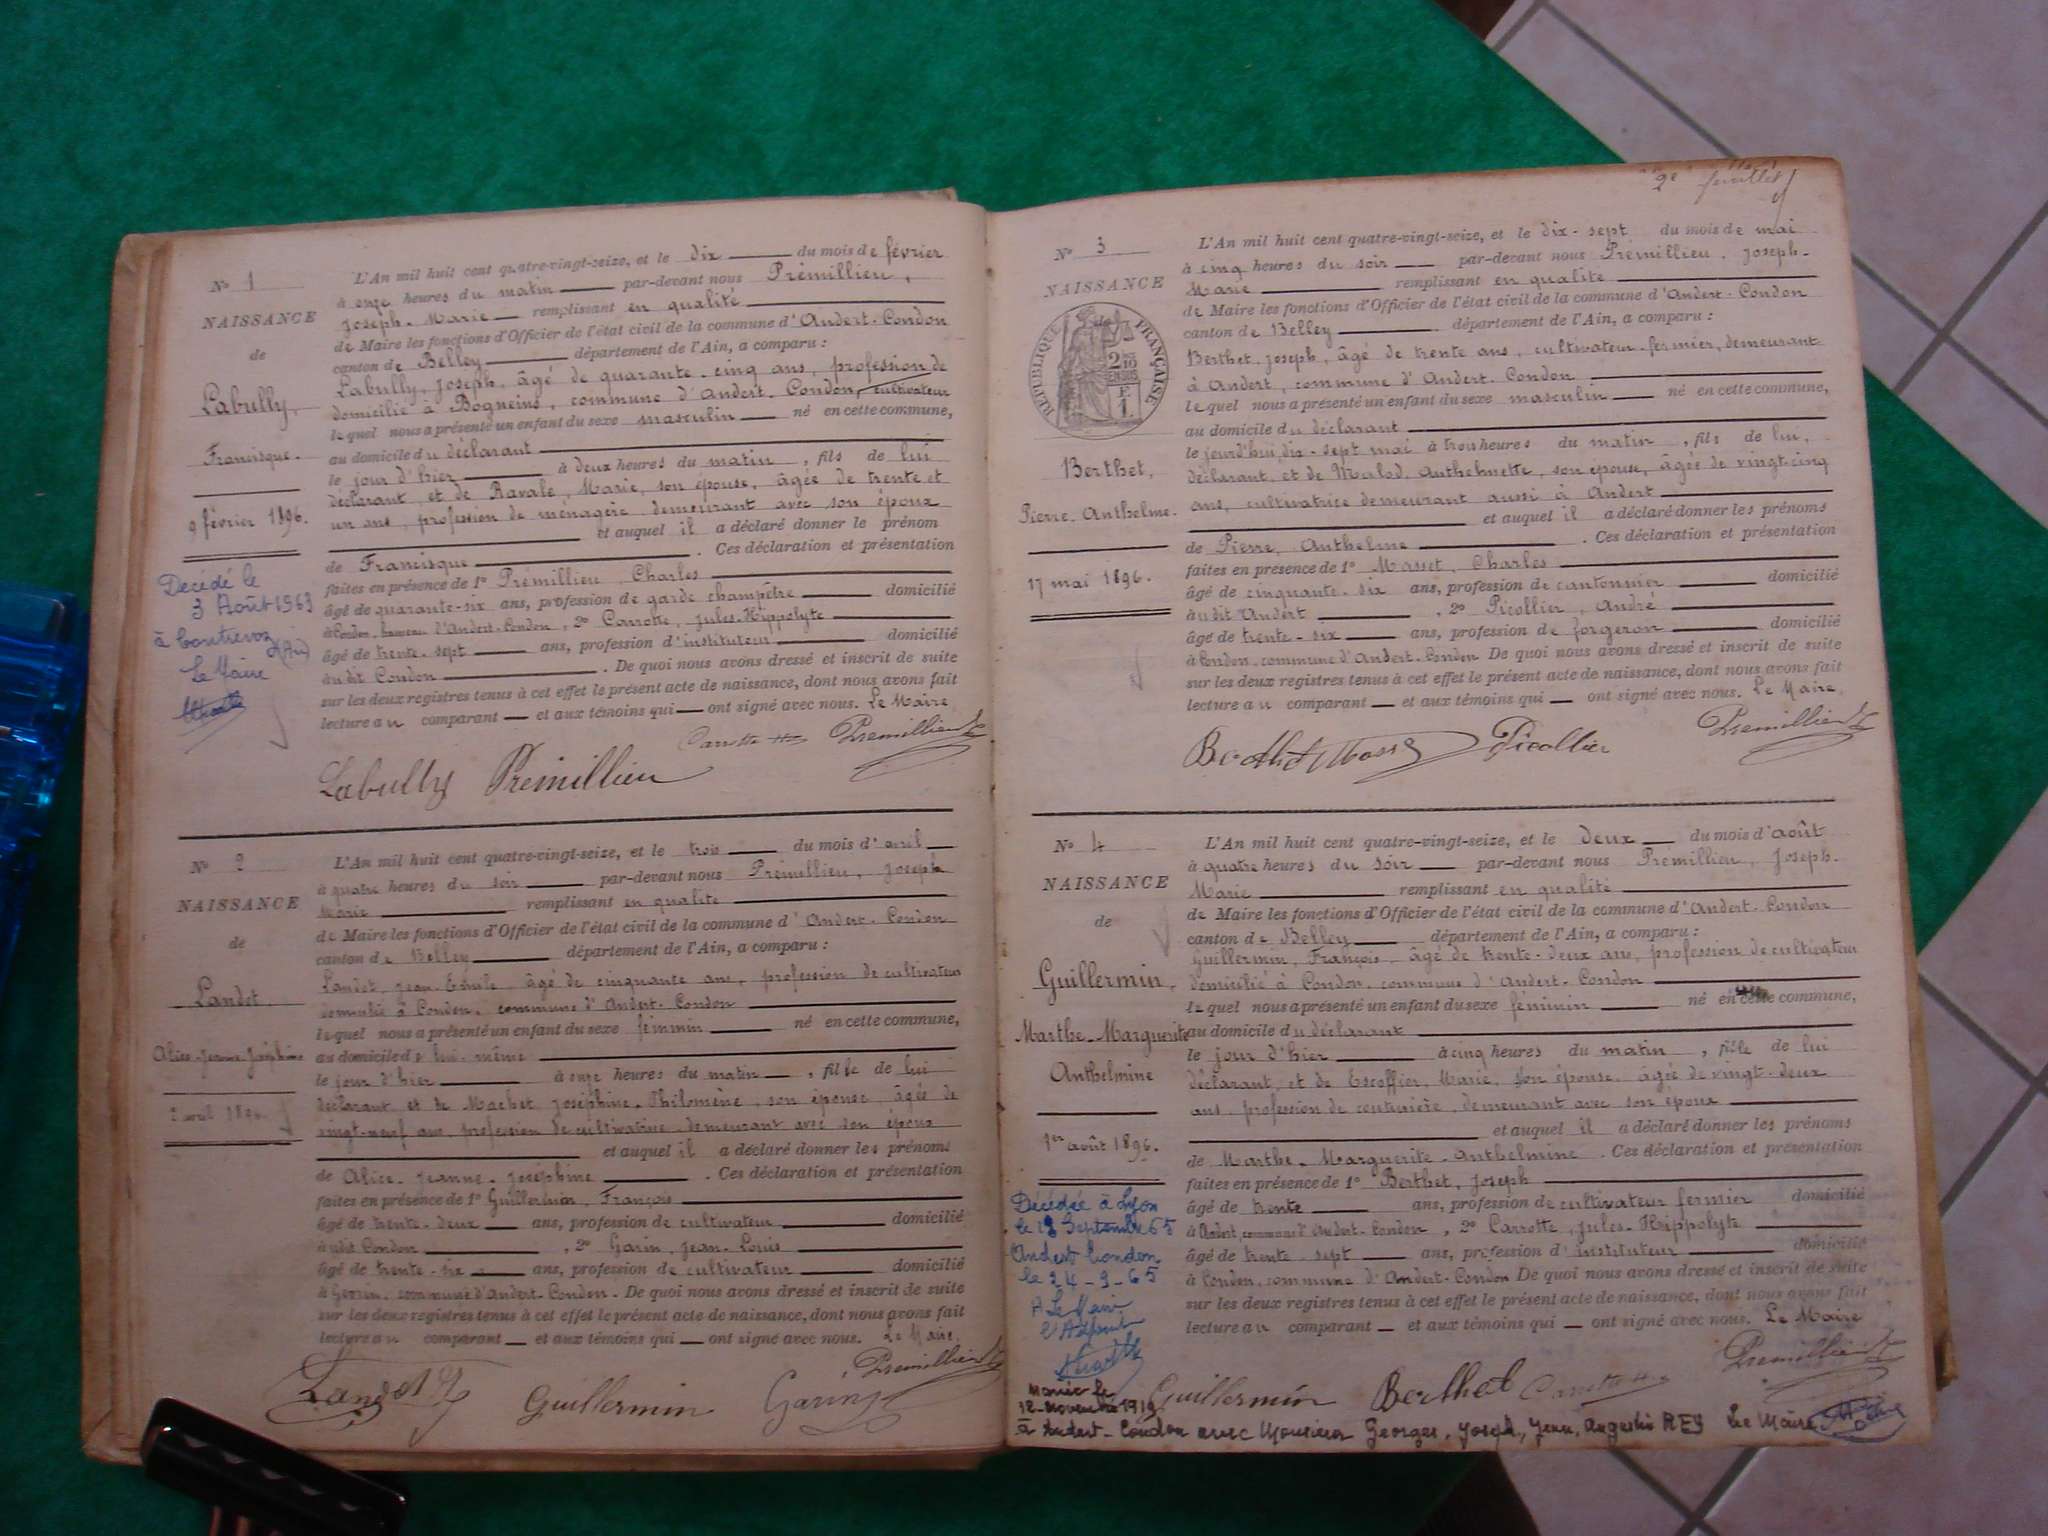 No 1
NAISSANCE
de
Labully,
Francisque.
9 février 1896.
Décédé le
3 Août 1963
à Contrevoz
(Ain)
Le Maire
L'An mil huit cent quatre-vingt-seize, et le dix du mois de février
à onze heures du matin par-devant nous Prémillieu,
Joseph-Marie remplissant en qualité
de Maire les fonctions d'Officier de l'état civil de la commune d'Andert-Condon
canton de Belley département de l'Ain, a comparu :
Labully, Joseph, âgé de quarante-cinq ans, profession de
domicilié à Bogneins, commune d'Andert-Condon, cultivateur
lequel nous a présenté un enfant du sexe masculin né en cette commune,
au domicile du déclarant
le jour d'hier à deux heures du matin, fils de lui
déclarant, et de Ravale, Marie, son épouse, âgée de trente et
un ans, profession de ménagère, demeurant avec son époux
et auquel il a déclaré donner le prénom
de Francisque. Ces déclaration et présentation
faites en présence de 1° Prémillieu, Charles
âgé de quarante-six ans, profession de garde champêtre domicilié
à Condon, hameau d'Andert-Condon, 2° Carrotte, Jules-Hippolyte
âgé de trente-sept ans, profession d'instituteur domicilié
audit Condon. De quoi nous avons dressé et inscrit de suite
sur les deux registres tenus à cet effet le présent acte de naissance, dont nous avons fait
lecture au comparant et aux témoins qui ont signé avec nous. Le Maire,
Carrotte Prémillieu
Labully Prémillieu
No 2
NAISSANCE
de
Landet.
Alice-Jeanne-Joséphine
2 avril 1896.
L'An mil huit cent quatre-vingt-seize, et le trois du mois d'avril
à quatre heures du soir par-devant nous Prémillieu, Joseph
Marie remplissant en qualité
de Maire les fonctions d'Officier de l'état civil de la commune d'Andert-Condon
canton de Belley département de l'Ain, a comparu :
Landet, Jean-Emile, âgé de cinquante ans, profession de cultivateur
domicilié à Condon, commune d'Andert-Condon
lequel nous a présenté un enfant du sexe féminin né en cette commune,
au domicile de lui-même
le jour d'hier à onze heures du matin, fille de lui
déclarant et de Machet Joséphine-Philomène, son épouse, âgée de
vingt-neuf ans, profession de cultivatrice demeurant avec son époux
et auquel il a déclaré donner les prénoms
de Alice-Jeanne-Joséphine. Ces déclaration et présentation
faites en présence de 1° Guillermin, François
âgé de trente-deux ans, profession de cultivateur domicilié
audit Condon, 2° Garin, Jean-Louis
âgé de trente-six ans, profession de cultivateur domicilié
à commune d'Andert-Condon. De quoi nous avons dressé et inscrit de suite
sur les deux registres tenus à cet effet le présent acte de naissance, dont nous avons fait
lecture au comparant et aux témoins qui ont signé avec nous. Le Maire,
Prémillieu
Landet Guillermin Garin
2e feuillet
No 3
NAISSANCE
RÉPUBLIQUE FRANÇAISE
2/10
EN SUS
F
1
Berthet,
Pierre-Anthelme.
17 mai 1896.
L'An mil huit cent quatre-vingt-seize, et le dix-sept du mois de mai
à cinq heures du soir par-devant nous Prémillieu, Joseph-
Marie remplissant en qualité
de Maire les fonctions d'Officier de l'état civil de la commune d'Andert-Condon
canton de Belley département de l'Ain, a comparu :
Berthet, Joseph, âgé de trente ans, cultivateur-fermier, demeurant
à Andert, commune d'Andert-Condon
lequel nous a présenté un enfant du sexe masculin né en cette commune,
au domicile du déclarant
le jourd'hui, dix-sept mai à trois heures du matin, fils de lui,
déclarant, et de Malod, Anthelmette, son épouse, âgée de vingt-cinq
ans, cultivatrice demeurant aussi à Andert
et auquel il a déclaré donner les prénoms
de Pierre, Anthelme. Ces déclaration et présentation
faites en présence de 1° Masset, Charles
âgé de cinquante-six ans, profession de cantonnier domicilié
audit Andert, 2° Picollier, André
âgé de trente-six ans, profession de forgeron domicilié
à Condon, commune d'Andert-Condon De quoi nous avons dressé et inscrit de suite
sur les deux registres tenus à cet effet le présent acte de naissance, dont nous avons fait
lecture au comparant et aux témoins qui ont signé avec nous. Le Maire,
Prémillieu
Berthet Picollier
No 4
NAISSANCE
de
Guillermin,
Marthe-Marguerite
Anthelmine
1er août 1896.
Décédée à Lyon
le 18 Septembre 65
Andert Condon
le 24-9-65
L'An mil huit cent quatre-vingt-seize, et le deux du mois d'août
à quatre heures du soir par-devant nous Prémillieu, Joseph-
Marie remplissant en qualité
de Maire les fonctions d'Officier de l'état civil de la commune d'Andert-Condon
canton de Belley département de l'Ain, a comparu :
Guillermin, François âgé de trente-deux ans, profession de cultivateur
domicilié à Condon, commune d'Andert-Condon
lequel nous a présenté un enfant du sexe féminin né en cette commune,
au domicile du déclarant
le jour d'hier à cinq heures du matin, fille de lui
déclarant, et de Escoffier, Marie, son épouse, âgée de vingt-deux
ans, profession de couturière, demeurant avec son époux
et auquel il a déclaré donner les prénoms
de Marthe-Marguerite-Anthelmine. Ces déclaration et présentation
faites en présence de 1° Berthet, Joseph
âgé de trente ans, profession de cultivateur fermier domicilié
à Andert, commune d'Andert-Condon, 2° Carrotte, Jules-Hippolyte
âgé de trente-sept ans, profession d'instituteur domicilié
à Condon, commune d'Andert-Condon De quoi nous avons dressé et inscrit de suite
sur les deux registres tenus à cet effet le présent acte de naissance, dont nous avons fait
lecture au comparant et aux témoins qui ont signé avec nous. Le Maire
Prémillieu
Guillermin Berthet Carrotte
Mariée le
12 Novembre 1919
à Andert-Condon avec Monsieur Georges, Joseph, Jean, REY Le Maire